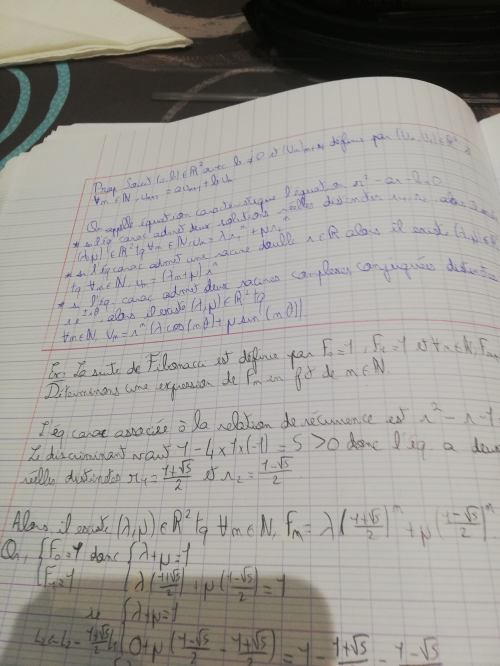 Prop Soient (a,b) ∈ ℝ² avec b ≠ 0 et (Un)n∈ℕ définie par (U0, U1) ∈ ℝ² et
∀n ∈ ℕ, Un+2 = aUn+1 + bUn
On appelle équation caractéristique l'équation r² - ar - b = 0
* si l'éq carac admet deux solutions réelles distinctes alors
(λ,μ) ∈ ℝ² tq ∀n ∈ ℕ, Un = λr1^n + μr2^n
* si l'éq carac admet une racine double r ∈ ℝ alors il existe (λ,μ) ∈
tq ∀n ∈ ℕ, Un = (λn+μ) r^n
* si l'éq. carac admet deux racines complexes conjuguées distinctes
alors il existe (λ,μ) ∈ ℝ² tq
∀n ∈ ℕ Un = r^n (λ cos(nθ) + μ sin(nθ))
Ex: La suite de Fibonacci est définie par F0 = 1, F1 = 1 et ∀n ∈ ℕ,
Déterminons une expression de Fn en f° de n ∈ ℕ.
L'éq carac associée à la relation de récurrence est r² - r - 1
Le discriminant vaut 1 - 4×1×(-1) = 5 > 0 donc l'éq a deux
réelles distinctes r1 = (1+√5)/2 et r2 = (1-√5)/2.
Alors il existe (λ,μ) ∈ ℝ² tq ∀n ∈ ℕ, Fn = λ((1+√5)/2)^n + μ((1-√5)/2)^n
Or, { F0 = 1 donc { λ+μ = 1
{ F1 = 1 { λ((1+√5)/2) + μ((1-√5)/2) = 1
{ λ+μ = 1
L2←L2 - (1+√5)/2 L1 { 0 + μ((1-√5)/2 - (1+√5)/2) = 1 - (1+√5)/2 = (1-√5)